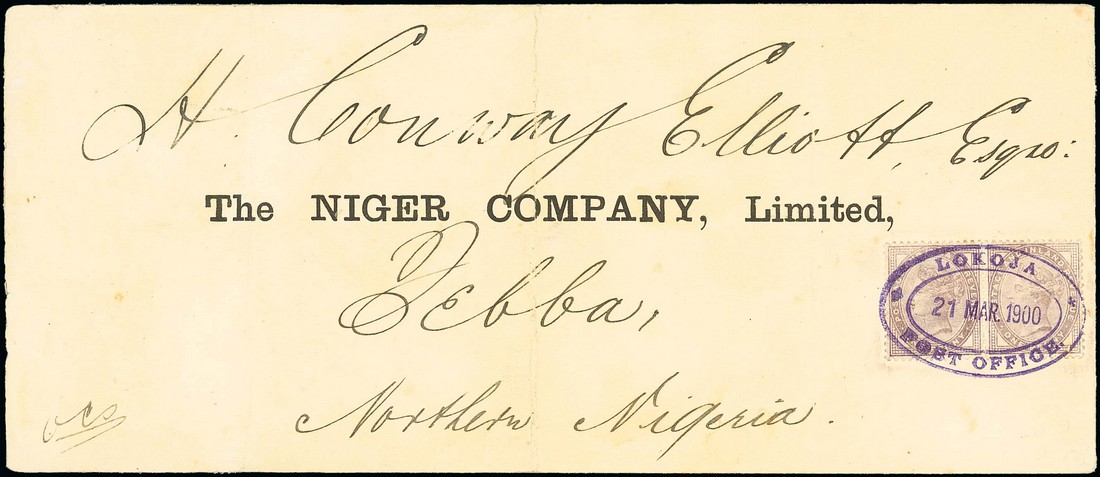 H. Conway Elliott, Esqre:
The NIGER COMPANY, Limited,
Jebba,
LOKOJA
21 MAR. 1900
POST OFFICE.
Northern Nigeria.